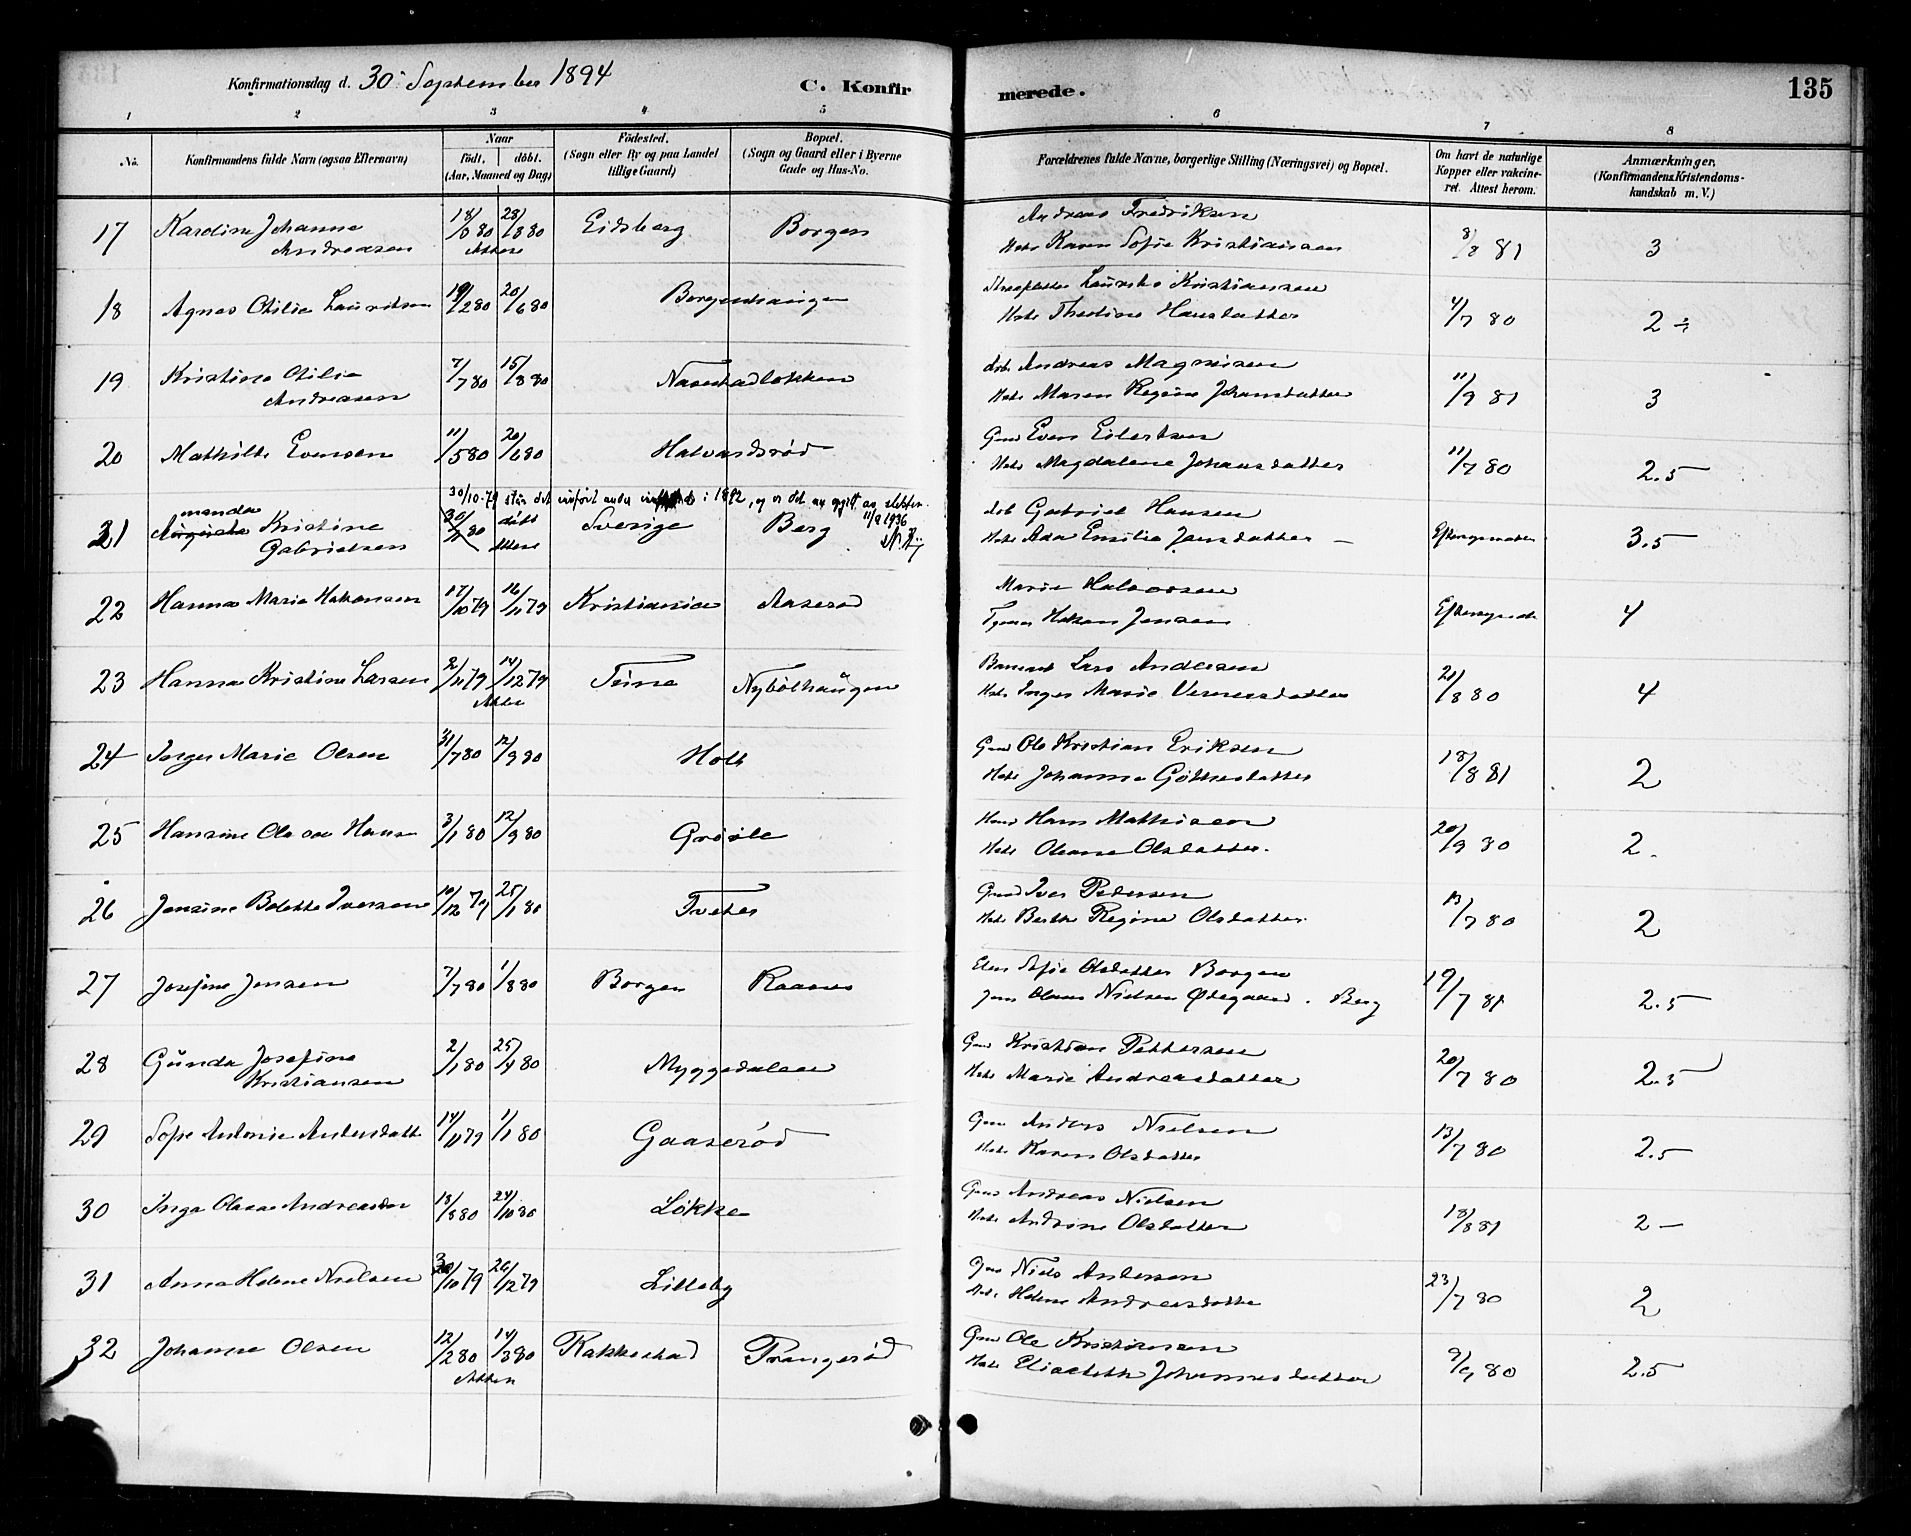 Konfirmationsdag d. 30 September 1894
C. Konfir
merede.
135
1 2 3 4 5 6 7 8
No.
Konfirmandens fulde Navn (ogsaa Efternavn)
Naar
födt. döbt.
(Aar, Maaned og Dag)
Födested.
(Sogn eller By og paa Landet
tillige Gaard)
Bopæl.
(Sogn og Gaard eller i Byerne
Gade og Hus-No.
Forældrenes fulde Navne, borgerlige Stilling (Næringsvei) og Bopæl.
Om havt de naturlige
Kopper eller vakcine-
ret. Attest herom.
Anmærkninger,
(Konfirmandens Kristendoms-
kundskab m. V.)
17 Karoline Johanne 18/3 80 28/3 80 Eidsberg Borgen Andreas Fredriksen
Andreasen Attest Karen Sofie Kristiansen 8/8 81 3
18 Agnes Otilie Lauritsen 19/2 80 20/6 80 Borgenhaugen Lauritz Kristiansen
Thedine Hansdatter 4/7 80 2 ÷
19 Kristine Otilie 7/7 80 15/8 80 Navestadløkken Andreas Magnusen
Andreasen Maren Regine Johansdatter 11/9 81 3
20 Mathilde Evensen 11/5 80 20/6 80 Halvardsrød Even Eilertsen
Magdalene Johansdatter 11/7 80 2.5
30/10-79 står det innført under i 1892, og er det av opgitt av slekten
11/2 1936
21 manda Kristine 80 Sverige Berg Gabriel Hansen
Gabrielsen Attest Ada Emilie Jansdatter 3.5
22 Hanna Marie Hakonsen 17/10 79 16/11 79 Kristiania Aaserød Marie Halvorsen
Hakon Jensen 4
23 Hanna Kristine Larsen 2/11 79 14/12 79 Tune Nybølhaugen Lars Andersen
Attest Inger Marie Vernersdatter 21/8 80 4
24 Inger Marie Olsen 31/7 80 12/9 80 Holt Ole Kristian Eriksen
Johanne 18/8 81 2
25 Hansine Hansen 3/1 80 12/9 80 Hans Mathisen
Oleane Olsdatter. 20/9 80 2.
26 Jensine Bolette Iversen 10/12 79 25/1 80 Tveter Iver Pedersen
Berthe Regine Olsdatter 13/7 80 2
27 Josefine Jensen 7/7 80 1/8 80 Borgen Raanes Sofie Olsdatter Borgen
Nielsen Ødegaard. Berg 19/7 81 2.5
28 Gunda Josefine 2/1 80 25/4 80 Myggedalen Kristian Pettersen
Kristiansen Marie Andreasdatter 20/7 80 2.5
29 Sofie Antonie Andersdatt 14/11 79 1/1 80 Gaaserød Anders Nielsen
Karen Olsdatter 13/7 80 2.5
30 Inga Olava Andreasen 18/8 80 24/10 80 Løkke Andreas Nielsen
Andrine Olsdatter 18/8 81 2 —
31 Anna Helene Nielsen 30/10 79 26/12 79 Lilleby Niels Andersen
Helene Andreasdatter 23/7 80 2
32 Johanne Olsen 12/2 80 14/3 80 Rakkestad Prangerød Ole Kristiansen
Attest Elisabeth Johannesdatter 9/9 80 2.5